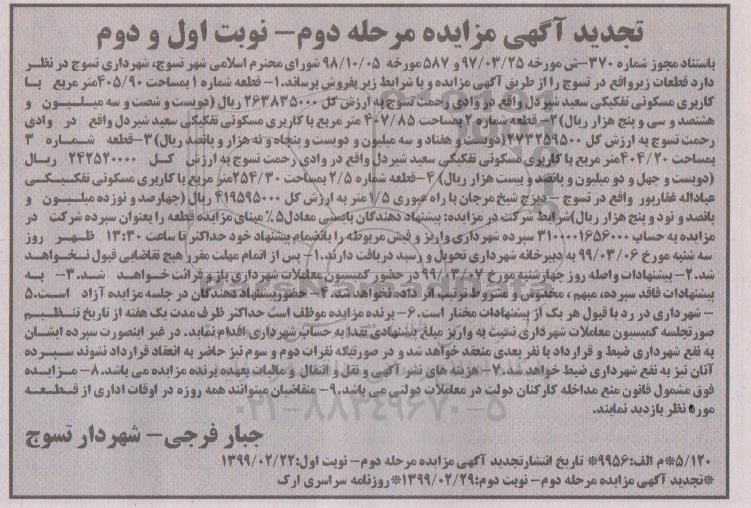 تجدید آگهی مزایده مرحله دوم- نوبت اول و دوم
باستناد مجوز شماره ۳۷۰-ش مورخه ۹۷/۰۳/۲۵ و ۵۸۷ مورخه ۹۸/۱۰/۰۵ شورای محترم اسلامی شهر تسوج، شهرداری تسوج در نظر
دارد قطعات زیر واقع در تسوج را از طریق آگهی مزایده و با شرایط زیر بفروش برساند.۱- قطعه شماره ۱ بمساحت ۴۰۵/۹۰متر مربع با
کاربری مسکونی تفکیکی سعید شیردل واقع در وادی رحمت تسوج به ارزش کل ۲۶۳۸۳۵۰۰۰ ریال (دویست و شصت و سه میلیون و
هشتصد و سی و پنج هزار ریال)۲- قطعه شماره ۲ بمساحت ۴۰۷/۸۵ متر مربع با کاربری مسکونی تفکیکی سعید شیردل واقع در وادی
رحمت تسوج به ارزش کل ۲۷۳۲۵۹۵۰۰(دویست و هفتاد و سه میلیون و دویست و پنجاه و نه هزار و پانصد ریال)۳-قطعه شماره ۳
بمساحت ۴۰۴/۲۰متر مربع با کاربری مسکونی تفکیکی سعید شیردل واقع در وادی رحمت تسوج به ارزش کل ۲۴۲۵۲۰۰۰۰ ریال
(دویست و چهل و دو میلیون و پانصد و بیست هزار ریال) ۴-قطعه شماره ۲/۵ بمساحت ۲۵۴/۳۰متر مربع با کاربری مسکونی تفکیکی
عباداله غفارپور واقع در تسوج – دیزج شیخ مرجان با راه عبوری ۱/۵ متر به ارزش کل ۴۱۹۵۹۵۰۰۰ ریال (چهارصد و نوزده میلیون و
پانصد و نود و پنج هزار ریال)شرایط شرکت در مزایده: پیشنهاد دهندگان بایستی معادل۵٪ مبنای مزایده قطعه را بعنوان سپرده شرکت در
مزایده به حساب ۳۱۰۰۰۰۱۶۵۶۰۰۰ سپرده شهرداری واریز و فیش مربوطه را بانضمام پیشنهاد خود حداکثر تا ساعت ۱۳:۳۰ ظهر روز
سه شنبه مورخ ۹۹/۰۳/۰۶ به دبیرخانه شهرداری تحویل و رسید دریافت دارند.۱- پس از اتمام مهلت مقرر هیچ تقاضایی قبول نخواهد
شد.۲- پیشنهادات واصله روز چهارشنبه مورخ ۹۹/۰۳/۰۷ در حضور کمیسیون معاملات شهرداری باز و قرائت خواهد شد.۳- به
پیشنهادات فاقد سپرده، مبهم ، مخدوش و مشروط ترتیب اثر داده نخواهد شد.۴- حضور پیشنهاد دهندگان در جلسه مزایده آزاد است.۵
- شهرداری در رد یا قبول هر یک از پیشنهادات مختار است.۶- برنده مزایده موظف است حداکثر ظرف مدت یک هفته از تاریخ تنظیم
صورتجلسه کمیسیون معاملات شهرداری نسبت به واریز مبلغ پیشنهادی نقدا به حساب شهرداری اقدام نماید. در غیر اینصورت سپرده ایشان
به نفع شهرداری ضبط و قرارداد با نفر بعدی منعقد خواهد شد و در صورتیکه نفرات دوم و سوم نیز حاضر به انعقاد قرارداد نشوند سپرده
آنان نیز به نفع شهرداری ضبط خواهد شد.۷- هزینه های نشر آگهی و نقل و انتقال و مالیات بعهده برنده مزایده می باشد.۸- مزایده
فوق مشمول قانون منع مداخله کارکنان دولت در معاملات دولتی می باشد.۹- متقاضیان میتوانند همه روزه در اوقات اداری از قطعه
مورد نظر بازدید نمایند.
جبار فرجی- شهردار تسوج
۵/۱۲۰*م الف:۹۹۵۶* تاریخ انتشار تجدید آگهی مزایده مرحله دوم- نوبت اول:۱۳۹۹/۰۲/۲۲
*تجدید آگهی مزایده مرحله دوم- نوبت دوم:۱۳۹۹/۰۲/۲۹*روزنامه سراسری ارک
ParsNamadData
۰۲۱-۸۸۳۴۹۶۷۰-۵